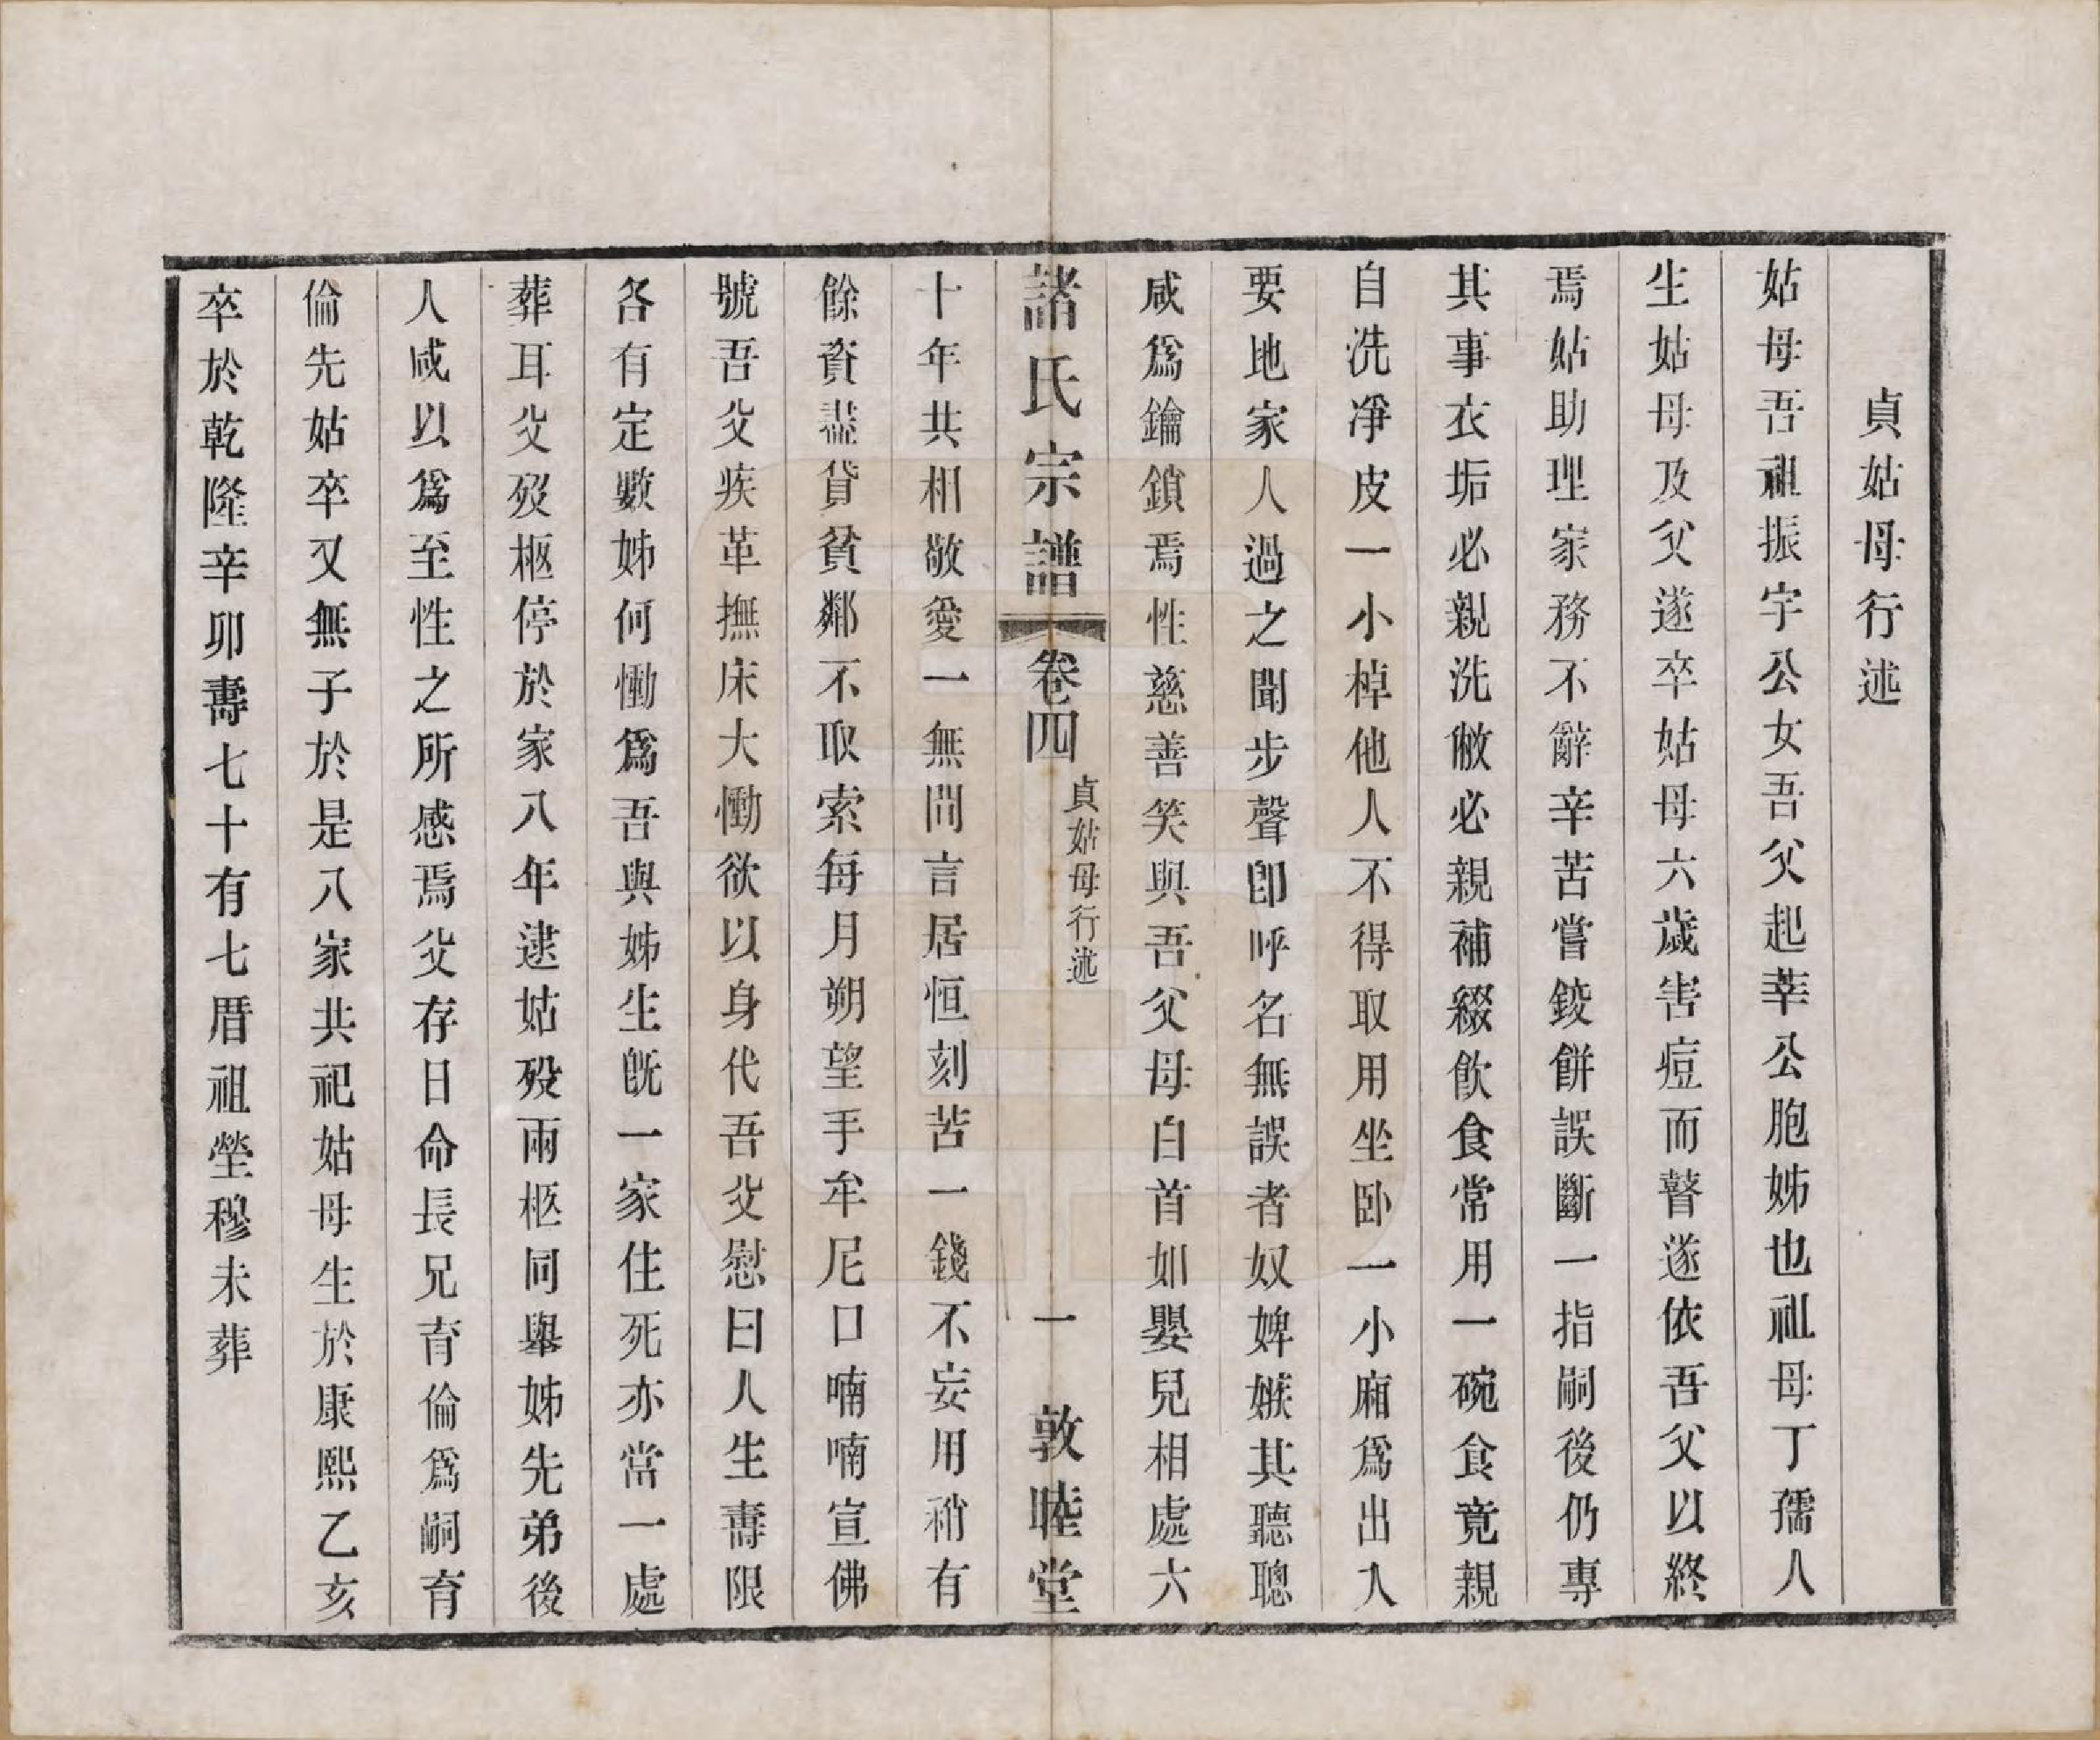 貞姑母行述
姑母吾祖振宇公女吾父起莘公胞姊也祖母丁孺人
生姑母及父遂卒姑母六歲害痘而瞽遂依吾父以終
焉姑助理家務不辭辛苦嘗錂餅誤斷一指嗣後仍專
其事衣垢必親洗敝必親補綴飲食常用一碗食竟親
自洗凈皮一小棹他人不得取用坐卧一小廂爲出入
要地家人過之聞步聲卽呼名無誤者奴婢嫉其聽聰
咸爲鑰鎖焉性慈善笑與吾父母白首如嬰兒相處六
諸氏宗譜 卷四 貞姑母行述 一 敦睦堂
十年共相敬愛一無間言居恒刻苦一錢不妄用稍有
餘資盡貸貧鄰不取索每月朔望手牟尼口喃喃宣佛
號吾父疾革撫床大慟欲以身代吾父慰曰人生壽限
各有定數姊何慟爲吾與姊生旣一家住死亦當一處
葬耳父歿柩停於家八年逮姑歿兩柩同舉姊先弟後
人咸以爲至性之所感焉父存日命長兄育倫爲嗣育
倫先姑卒又無子於是八家共祀姑母生於康熙乙亥
卒於乾隆辛卯壽七十有七厝祖塋穆未葬